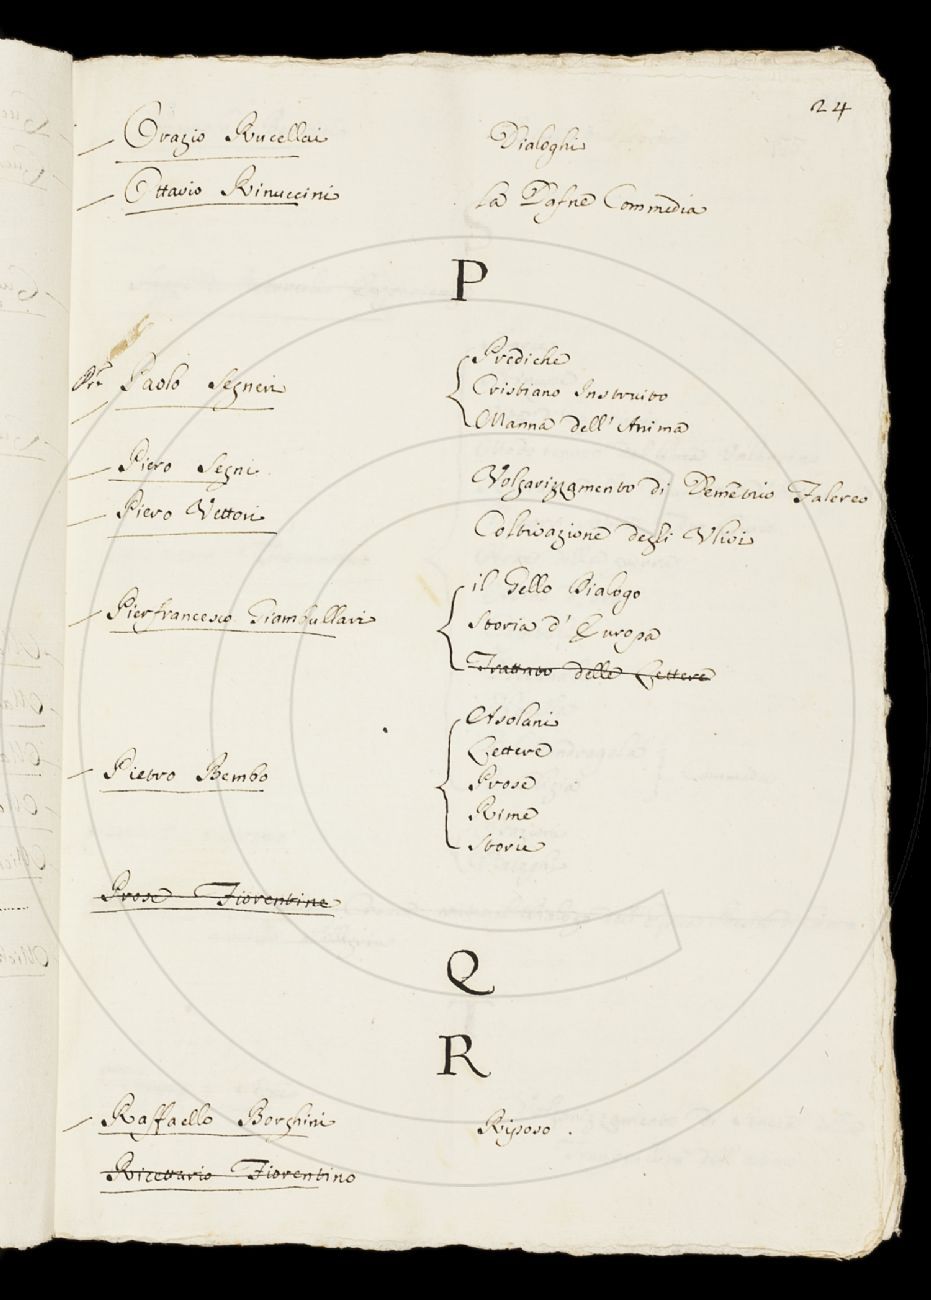 24
Orazio Rucellai Dialoghi
Ottavio Rinuccini La Dafne Commedia
P
Prediche
Paolo Segneri Cristiano Instruito
Manna dell' Anima
Piero Segni Volgarizzamento di Demetrio Falereo
Piero Vettori Coltivazione degli Ulivi
il Gello Dialogo
Pierfrancesco Giambullari Storia d' Europa
Trattato delle Lettere
Asolani
Lettere
Pietro Bembo Prose
Rime
Storie
Prose Fiorentine
Q
R
Raffaello Borghini Riposo .
Ricettario Fiorentino